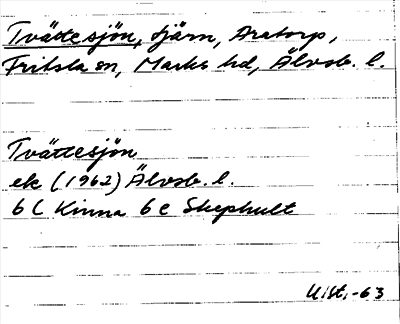 Tvättesjön, tjärn, Aratorp,
Fritsla sn, Marks hd, Älvsb. l.
Tvättesjön
ek (1962) Älvsb. l.
6 C Kinna 6 c Skephult
-63